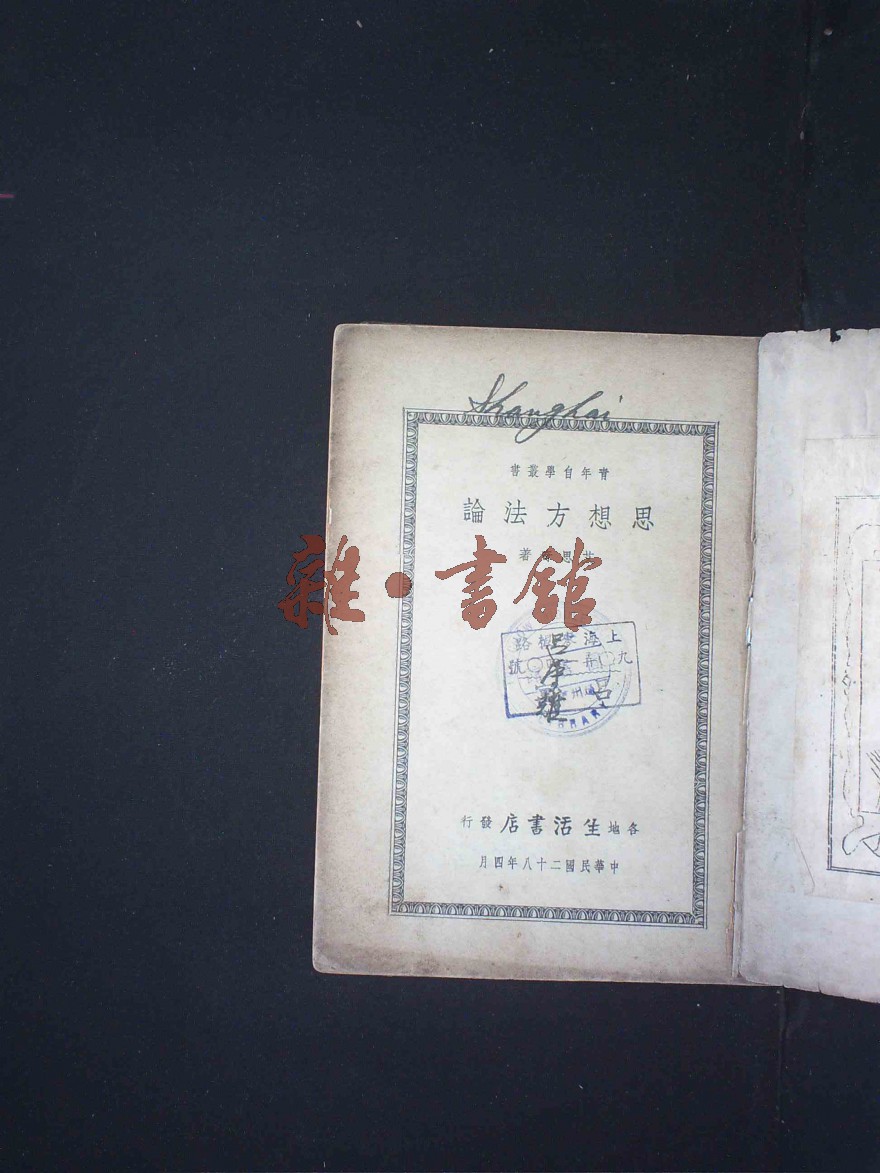 Shanghai
青年自學叢書
思想方法論
艾思奇著
雜·書館
呂
各地生活書店發行
中華民國二十八年四月